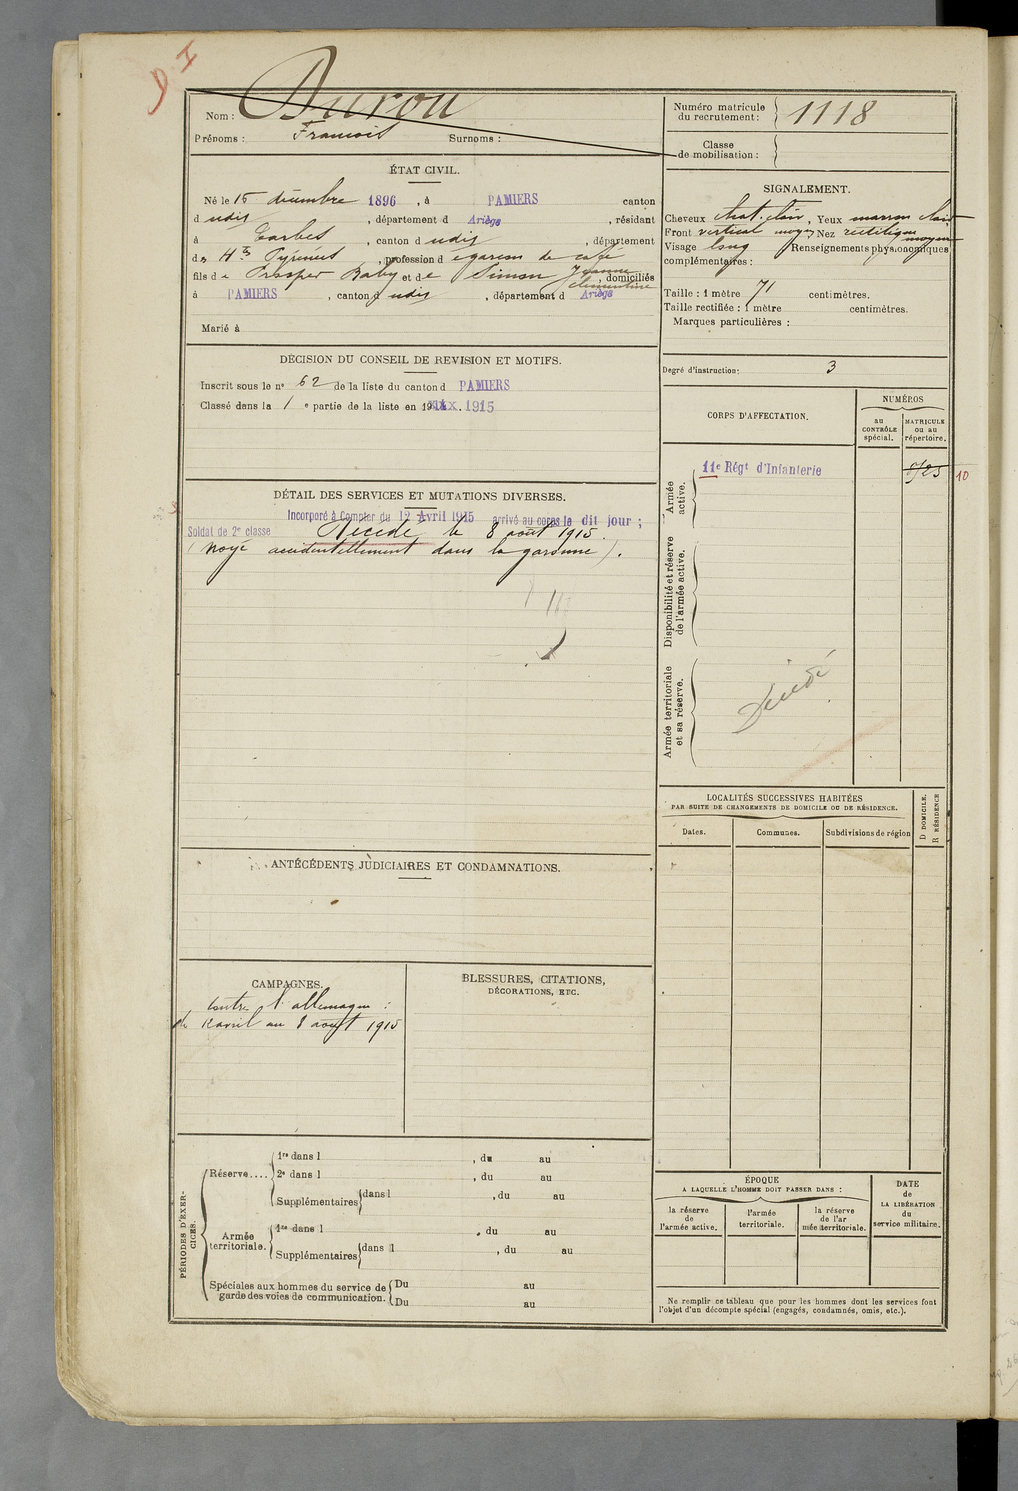 D I
Nom : Durou
Prénoms : Francois Surnoms :
Numéro matricule du recrutement : 1118
Classe de mobilisation :
ÉTAT CIVIL.
Né le 15 décembre 1896, à PAMIERS canton
d udis, département d Ariège, résidant
à Tarbes, canton d udis, département
des Htes Pyrénées, profession d garcon de café
fils de Prosper Baby et de Simon Jeanne Clémentine, domiciliés
à PAMIERS, canton d udis, département d Ariège
Marié à
SIGNALEMENT.
Cheveux chat. clair, Yeux marron clair
Front vertical moyen Nez rectiligne moyen
Visage long Renseignements physionomiques
complémentaires :
Taille : 1 mètre 71 centimètres.
Taille rectifiée : 1 mètre centimètres.
Marques particulières :
Degré d'instruction : 3
DÉCISION DU CONSEIL DE REVISION ET MOTIFS.
Inscrit sous le n° 62 de la liste du canton d PAMIERS
Classé dans la 1 e partie de la liste en 19 1915
CORPS D'AFFECTATION.
NUMÉROS
au CONTRÔLE spécial.
MATRICULE ou au répertoire.
Armée active.
11e Régt d'Infanterie
10
Disponibilité et réserve de l'armée active.
Armée territoriale et sa réserve.
Décédé
DÉTAIL DES SERVICES ET MUTATIONS DIVERSES.
Incorporé à Compter du 12 Avril 1915 arrivé au corps le dit jour ;
Soldat de 2e classe Décédé le 8 août 1915.
(Noyé accidentellement dans la garonne).
LOCALITÉS SUCCESSIVES HABITÉES
PAR SUITE DE CHANGEMENTS DE DOMICILE OU DE RÉSIDENCE.
Dates. Communes. Subdivisions de région
D DOMICILE.
R RÉSIDENCE
ANTÉCÉDENTS JUDICIAIRES ET CONDAMNATIONS.
CAMPAGNES.
Contre l'allemagne :
du 12 avril au 8 août 1915
BLESSURES, CITATIONS,
DÉCORATIONS, ETC.
PÉRIODES D'EXERCICES.
Réserve....
1re dans l , du au
2e dans l , du au
Supplémentaires dans l , du au
Armée territoriale.
1re dans l , du au
Supplémentaires dans l , du au
Spéciales aux hommes du service de garde des voies de communication.
Du au
Du au
ÉPOQUE
A LAQUELLE L'HOMME DOIT PASSER DANS :
la réserve de l'armée active.
l'armée territoriale.
la réserve de l'armée territoriale.
DATE de LA LIBÉRATION du service militaire.
Ne remplir ce tableau que pour les hommes dont les services font
l'objet d'un décompte spécial (engagés, condamnés, omis, etc.).